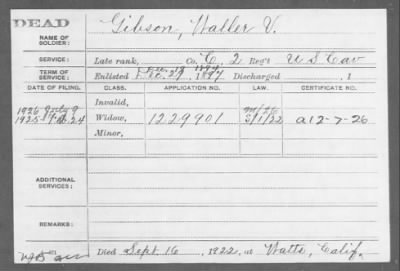 DEAD
NAME OF SOLDIER: Gibson, Walter V.
SERVICE: Late rank, Co. C, 2 Reg't U S Cav
TERM OF SERVICE: Enlisted Dec. 27, 1897 Discharged , 1
DATE OF FILING. CLASS. APPLICATION NO. LAW. CERTIFICATE NO.
Invalid,
1926 July 9 M/26
1925 Feb. 24 Widow, 1229901 5/1/22 a 12-7-26
Minor,
ADDITIONAL SERVICES:
REMARKS:
Died Sept. 16, 1922, at Watts, Calif.